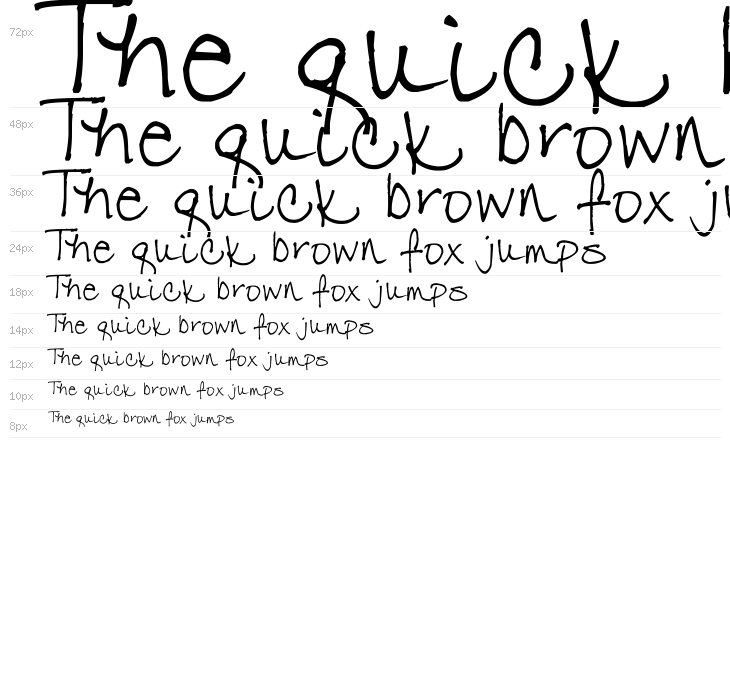 72px The quick
48px The quick brown
36px The quick brown fox
24px The quick brown fox jumps
18px The quick brown fox jumps
14px The quick brown fox jumps
12px The quick brown fox jumps
10px The quick brown fox jumps
8px The quick brown fox jumps